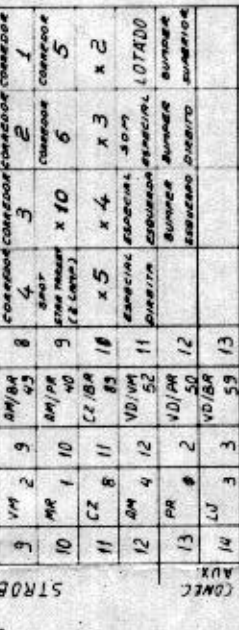 9 VM 2 9 AM/BR 49 8 CORREDOR 4 CORREDOR 3 CORREDOR 2 CORREDOR 1
10 MR 1 10 AM/PR 40 9 SPOT STAR TARGET (2 LAMP) x 10 CORREDOR 6 CORREDOR 5
11 CZ 8 11 CZ/BR 89 10 x 5 x 4 x 3 x 2
12 AM 4 12 VD/VM 52 11 ESPECIAL DIREITA ESPECIAL ESQUERDA SOM ESPECIAL LOTADO
13 PR 0 2 VD/PR 50 12 BUMPER ESQUERDO BUMPER DIREITO BUMPER SUPERIOR
14 LJ 3 3 VD/BR 59 13
STROB
CONEC. AUX.